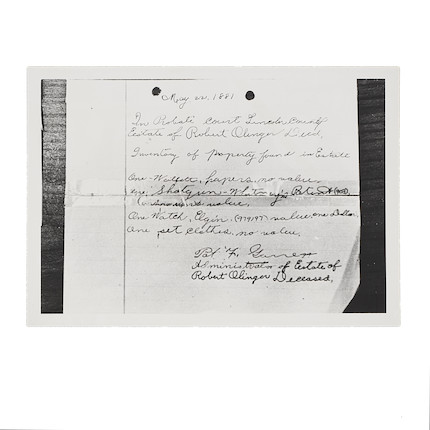 May 22, 1881
In Probate Court Lincoln County
Estate of Robert Olinger Decd,
Inventory of property found in Estate
One - Wallett, papers, no value,
One, Shotgun - Whitney's Pat.
unknown value,
One Watch, Elgin. value, one Dollar
One set clothes, no value,
Pat F. Garrett
Administrator of Estate of
Robert Olinger Deceased,